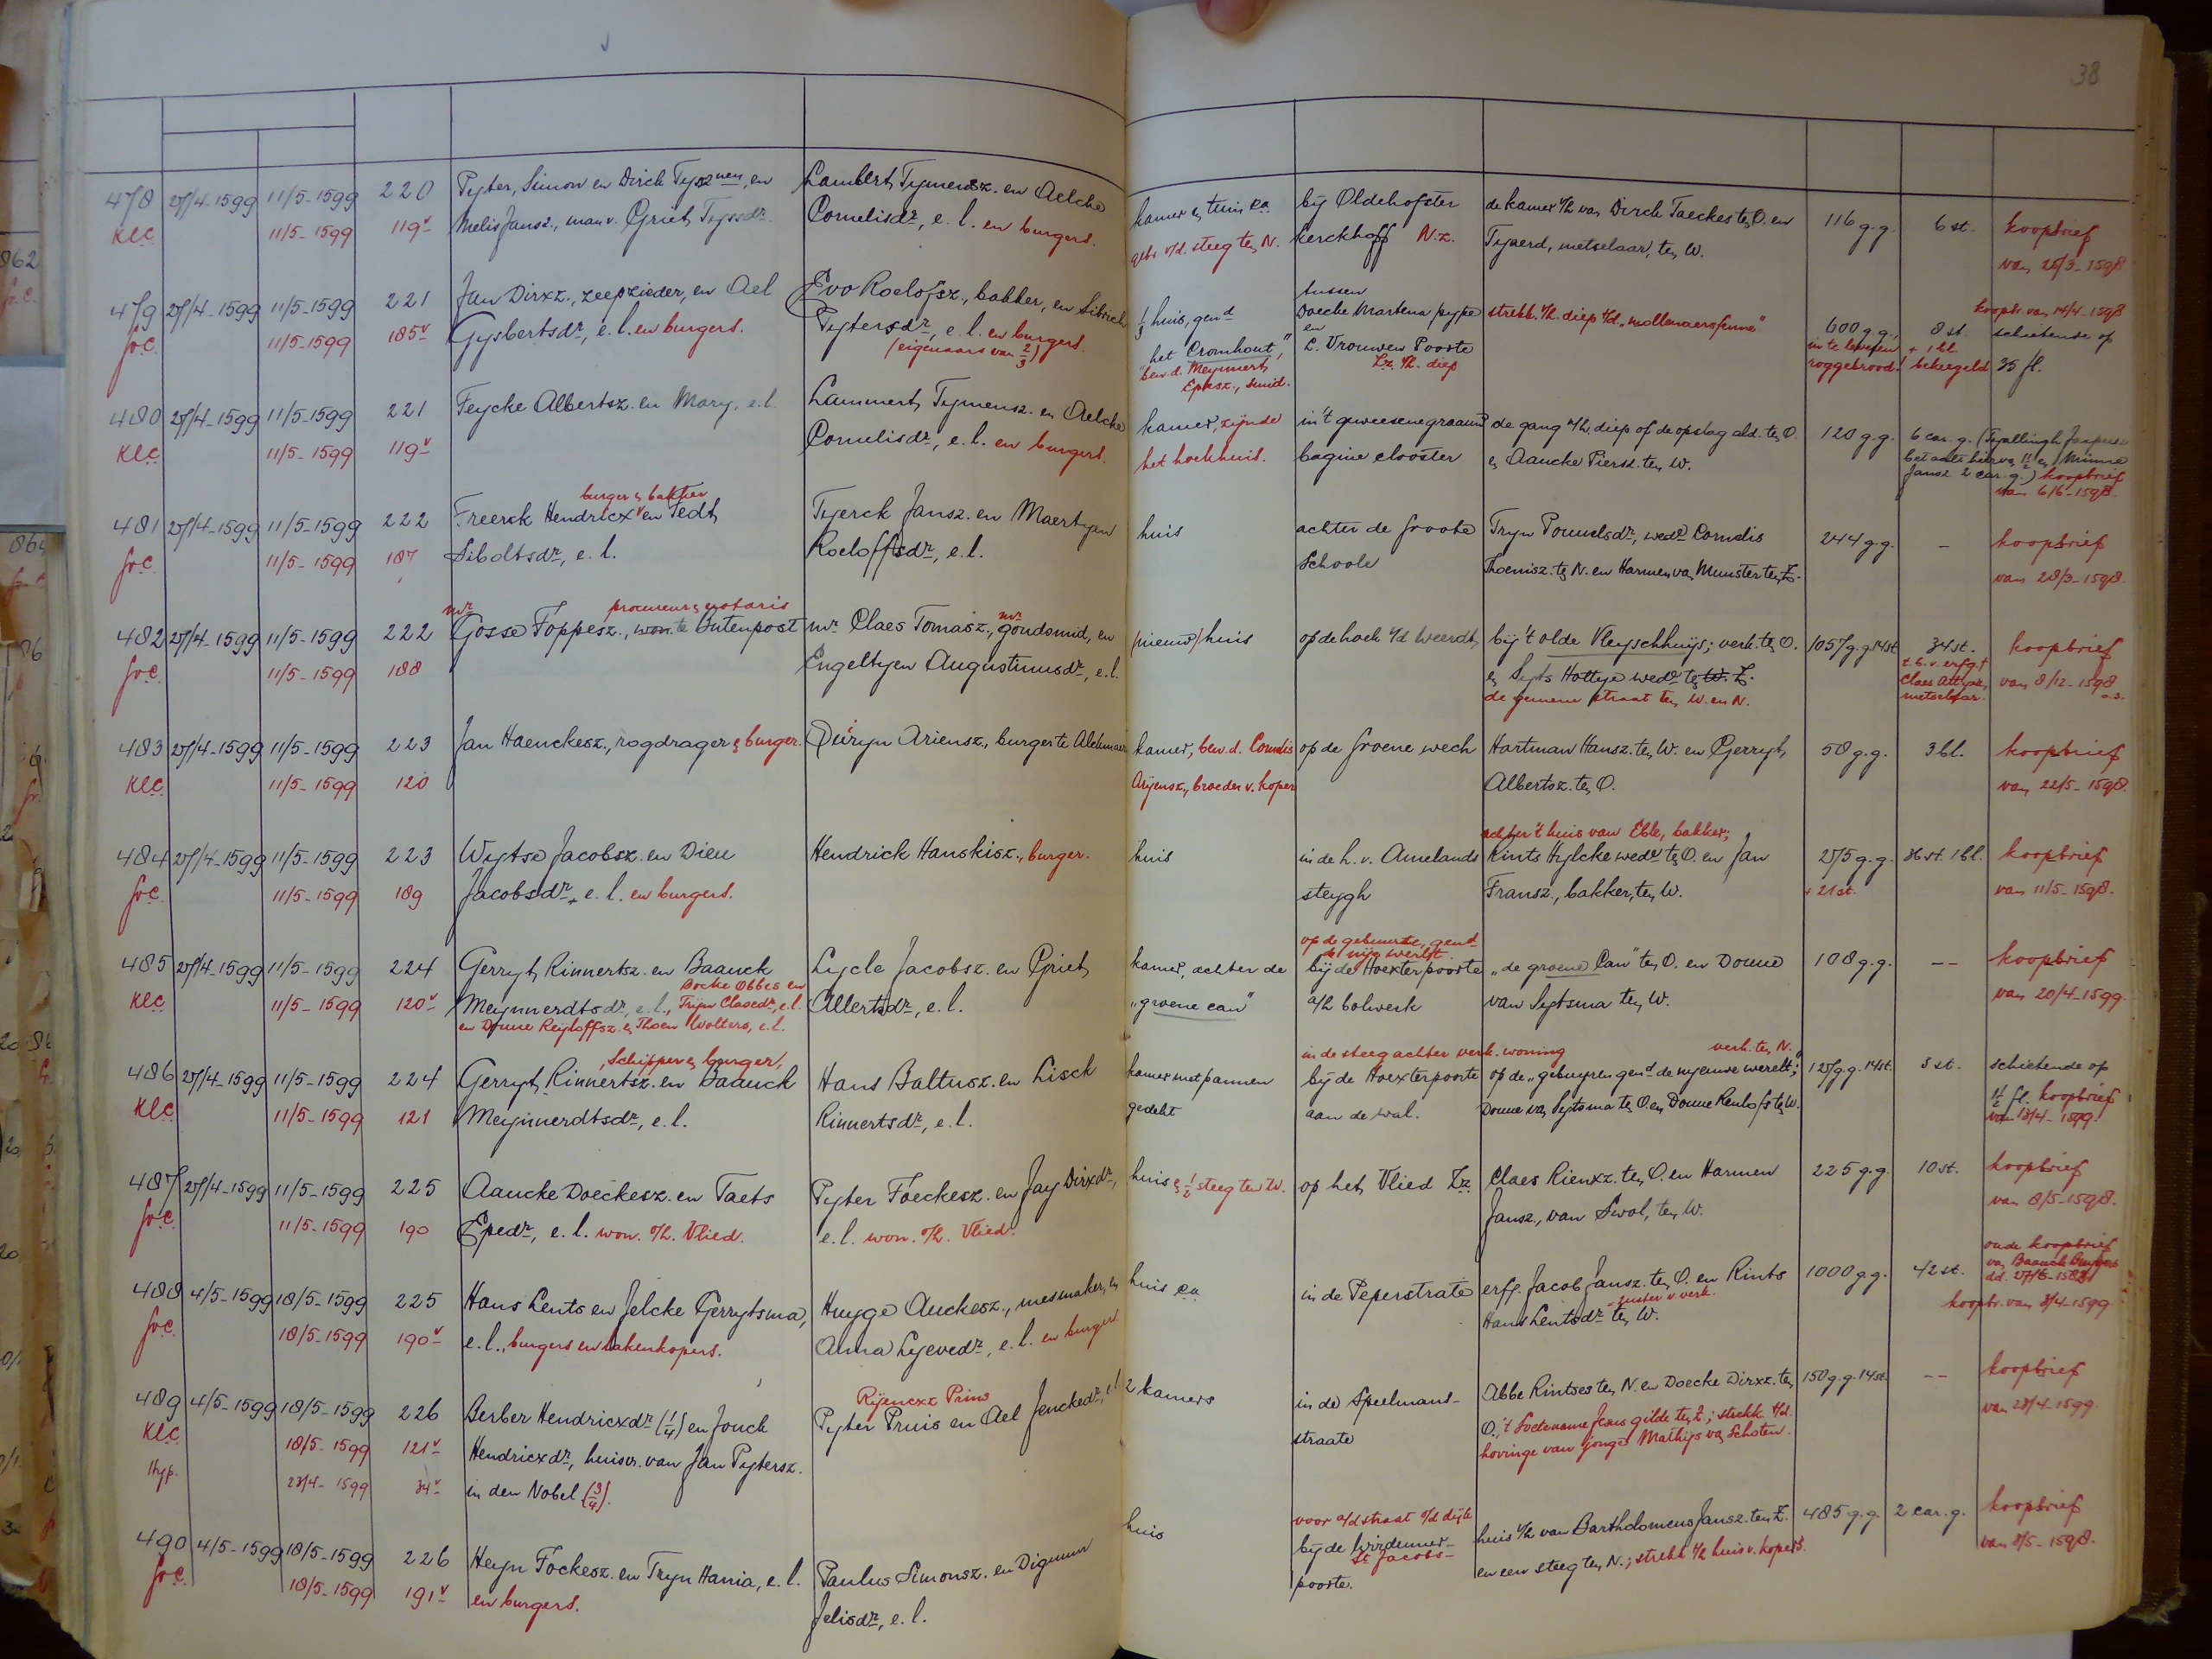 38
478 27/4-1599 11/5-1599 220 Pyter, Simon en Dirck Tysz nen, en Lambert Tymensz. en Aelche kamer en tuin ca bij Oldehofster de kamer v/h van Dirck Taeckes ten O. en 116 g.g. 6 st. koopbrief
Kl.C. 11/5-1599 119v Melis Jansz., man v. Griet Tyssdr. Cornelisdr, e.l. en burgers. gebr. v/d. steeg ten N. kerckhoff N.z. Tyaerd, metselaar, ten W. van 25/3-1598.
479 27/4-1599 11/5-1599 221 Jan Dirxz., zeepzieder, en Ael Evo Roelofsz., bakker, en Sibrich 1/3 huis, gend tussen Doecke Martena pype strekk. v/h. diep t/d. "mollenaersfenne" 600 g.g., 8 st. koopbr. van 14/4-1598
Gr.C. 11/5-1599 185v Gysbertsdr, e.l. en burgers. Pytersdr, e.l. en burgers. het Cromhout, en L. Vrouwen Poorte in te leveren + 1 bl. schietende op
(eigenaars van 2/3) bew. d. Meynnert Epesz., smid. Lz. v/h. diep roggebrood. bekeegeld 35 fl.
480 27/4-1599 11/5-1599 221 Feycke Albertsz. en Mary, e.l. Lammert Tymensz. en Aelche kamer, zijnde in 't geweesene graauw de gang v/h. diep of de opslag ald. ten O. 120 g.g. 6 car. g. (Tjallingh
Kl.C. 11/5-1599 119v Cornelisdr, e.l. en burgers. het hoekhuis. bagine clooster en Aancke Piersz. ten W. betaalt hierva en Minne
Jansz 2 car. g.) koopbrief
van 6/6-1598.
481 27/4-1599 11/5-1599 222 Freerck Hendricx burger en bakker en Tedt Tyerck Jansz. en Maertyen huis achter de Groote Tryn Pouwelsdr, wede Cornelis 244 g.g. - koopbrief
Gr.C. 11/5-1599 187 Siboltsdr, e.l. Roeloffsdr, e.l. Schoole Thoenisz. ten N. en Harmen van Munster ten Z. van 28/3-1598.
482 27/4-1599 11/5-1599 222 mr Gosse Foppesz., procureur en notaris won. te Butenpost mr Claes Tomasz., mr goudsmid, en (nieuw) huis op de hoek v/d Weerdt bij 't olde Vleyschhuijs; verk. ten O. 1057 g.g. 14 st. 34 st. koopbrief
Gr.C. 11/5-1599 188 Engeltyen Augustinusdr, e.l. en Syts Hottye wede ten W. Z. t.b.v. erfg. van 8/12-1598
de gemene straat ten W. en N. Claes metselaar.
483 27/4-1599 11/5-1599 223 Jan Haenckesz., rogdrager en burger. Quiryn Ariensz., burger te Alckmaer kamer, bew. d. Cornelis op de Groene wech Hartman Hansz. ten W. en Gerryt 58 g.g. 3 bl. koopbrief
Kl.C. 11/5-1599 120 Aryensz., broeder v. koper Albertsz. ten O. van 22/5-1598.
484 27/4-1599 11/5-1599 223 Wytse Jacobsz. en Dieu Hendrick Hanskisz., burger. huis in de h. v. Amelands achter 't huis van Eble, bakker; Rints Hylcke wede ten O. en Jan 275 g.g. 36 st. 1 bl. koopbrief
Gr.C. 11/5-1599 189 Jacobsdr, e.l. en burgers. steygh Fransz., bakker, ten W. + 21 st. van 11/5-1598.
485 27/4-1599 11/5-1599 224 Gerryt Rinnertsz. en Baanck Lycle Jacobsz. en Griet kamer, achter de op de gebuurte, gend de nije werelt bij de Hoexterpoorte "de groene Can" ten O. en Douwe 108 g.g. -- koopbrief
Kl.C. 11/5-1599 120v Meynnerdtsdr, e.l., Bocke Obbes en Tryn Claesdr, e.l. Allertsdr, e.l. "groene can" a/h bolwerk van Sytsma ten W. van 20/4-1599.
en Douwe Reyloffsz. en Thoen Wolters, e.l.
486 27/4-1599 11/5-1599 224 Gerryt Rinnertsz. Schipper en burger, en Baanck Hans Baltusz. en Lisck kamer met pannen in de steeg achter verk. woning bij de Hoexterpoorte verk. ten N. op de "gebuyren gend de nyeuwe werelt"; 127 g.g. 14 st. 3 st. schietende op
Kl.C. 11/5-1599 121 Meynnerdtsdr, e.l. Rinnertsdr, e.l. gedekt aan de wal. Douwe van Sytsma ten O. en Douwe Reulofs ten W. fl. koopbrief
van 13/4-1599.
487 27/4-1599 11/5-1599 225 Aancke Doeckesz. en Taets Pyter Foeckesz. en Jay Dirxdr, huis en 1/2 steeg ten W. op het Vlied Zz Claes Rienxz. ten O. en Harmen 225 g.g. 10 st. koopbrief
Gr.C. 11/5-1599 190 Epedr, e.l. won. o/h. Vlied. e.l. won. o/h. Vlied. Jansz., van Swol, ten W. van 8/5-1598.
488 4/5-1599 18/5-1599 225 Hans Lents en Jelcke Gerrytsma, Huyge Auckesz., mesmaker, en huis ca in de Peperstrate erfg. Jacob Jansz. ten O. en Rints 1000 g.g. 42 st. oude koopbrief
Gr.C. 18/5-1599 190v e.l., burgers en lakenkopers. Anna Lyevedr, e.l. en burgers Hans Lentsdr zuster v. verk. ten W. van Baanck Burgers
koopbr. van 8/4-1599
489 4/5-1599 18/5-1599 226 Berber Hendricxdr (1/4) en Jouck Pyter Rijencxz Prins Pruis en Ael Jenckedr, e.l. 2 kamers in de Speelmans- Abbe Rintses ten N. en Doecke Dirxz. ten 150 g.g. 14 st. -- koopbrief
Kl.C. 18/5-1599 121v Hendricxdr, huisvr. van Jan Pytersz. straate O., 't Soetename Jesus gilde ten Z.; strekk. t/d. van 23/4-1599.
Hyp. 23/4-1599 34v in den Nobel (3/4). hovinge van jonge Mathijs van Schoten.
490 4/5-1599 18/5-1599 226 Heyn Fockesz. en Tryn Hania, e.l. Paulus Simonsz. en Digmum huis voor a/d straat o/d dijk bij de Wirdumer- huis v/h van Bartholomeus Jansz. ten Z. 485 g.g. 2 car. g. koopbrief
Gr.C. 18/5-1599 191v en burgers. Jelisdr, e.l. St Jacobs- poorte. en een steeg ten N.; strekk v/h huis v. kopers. van 8/5-1598.